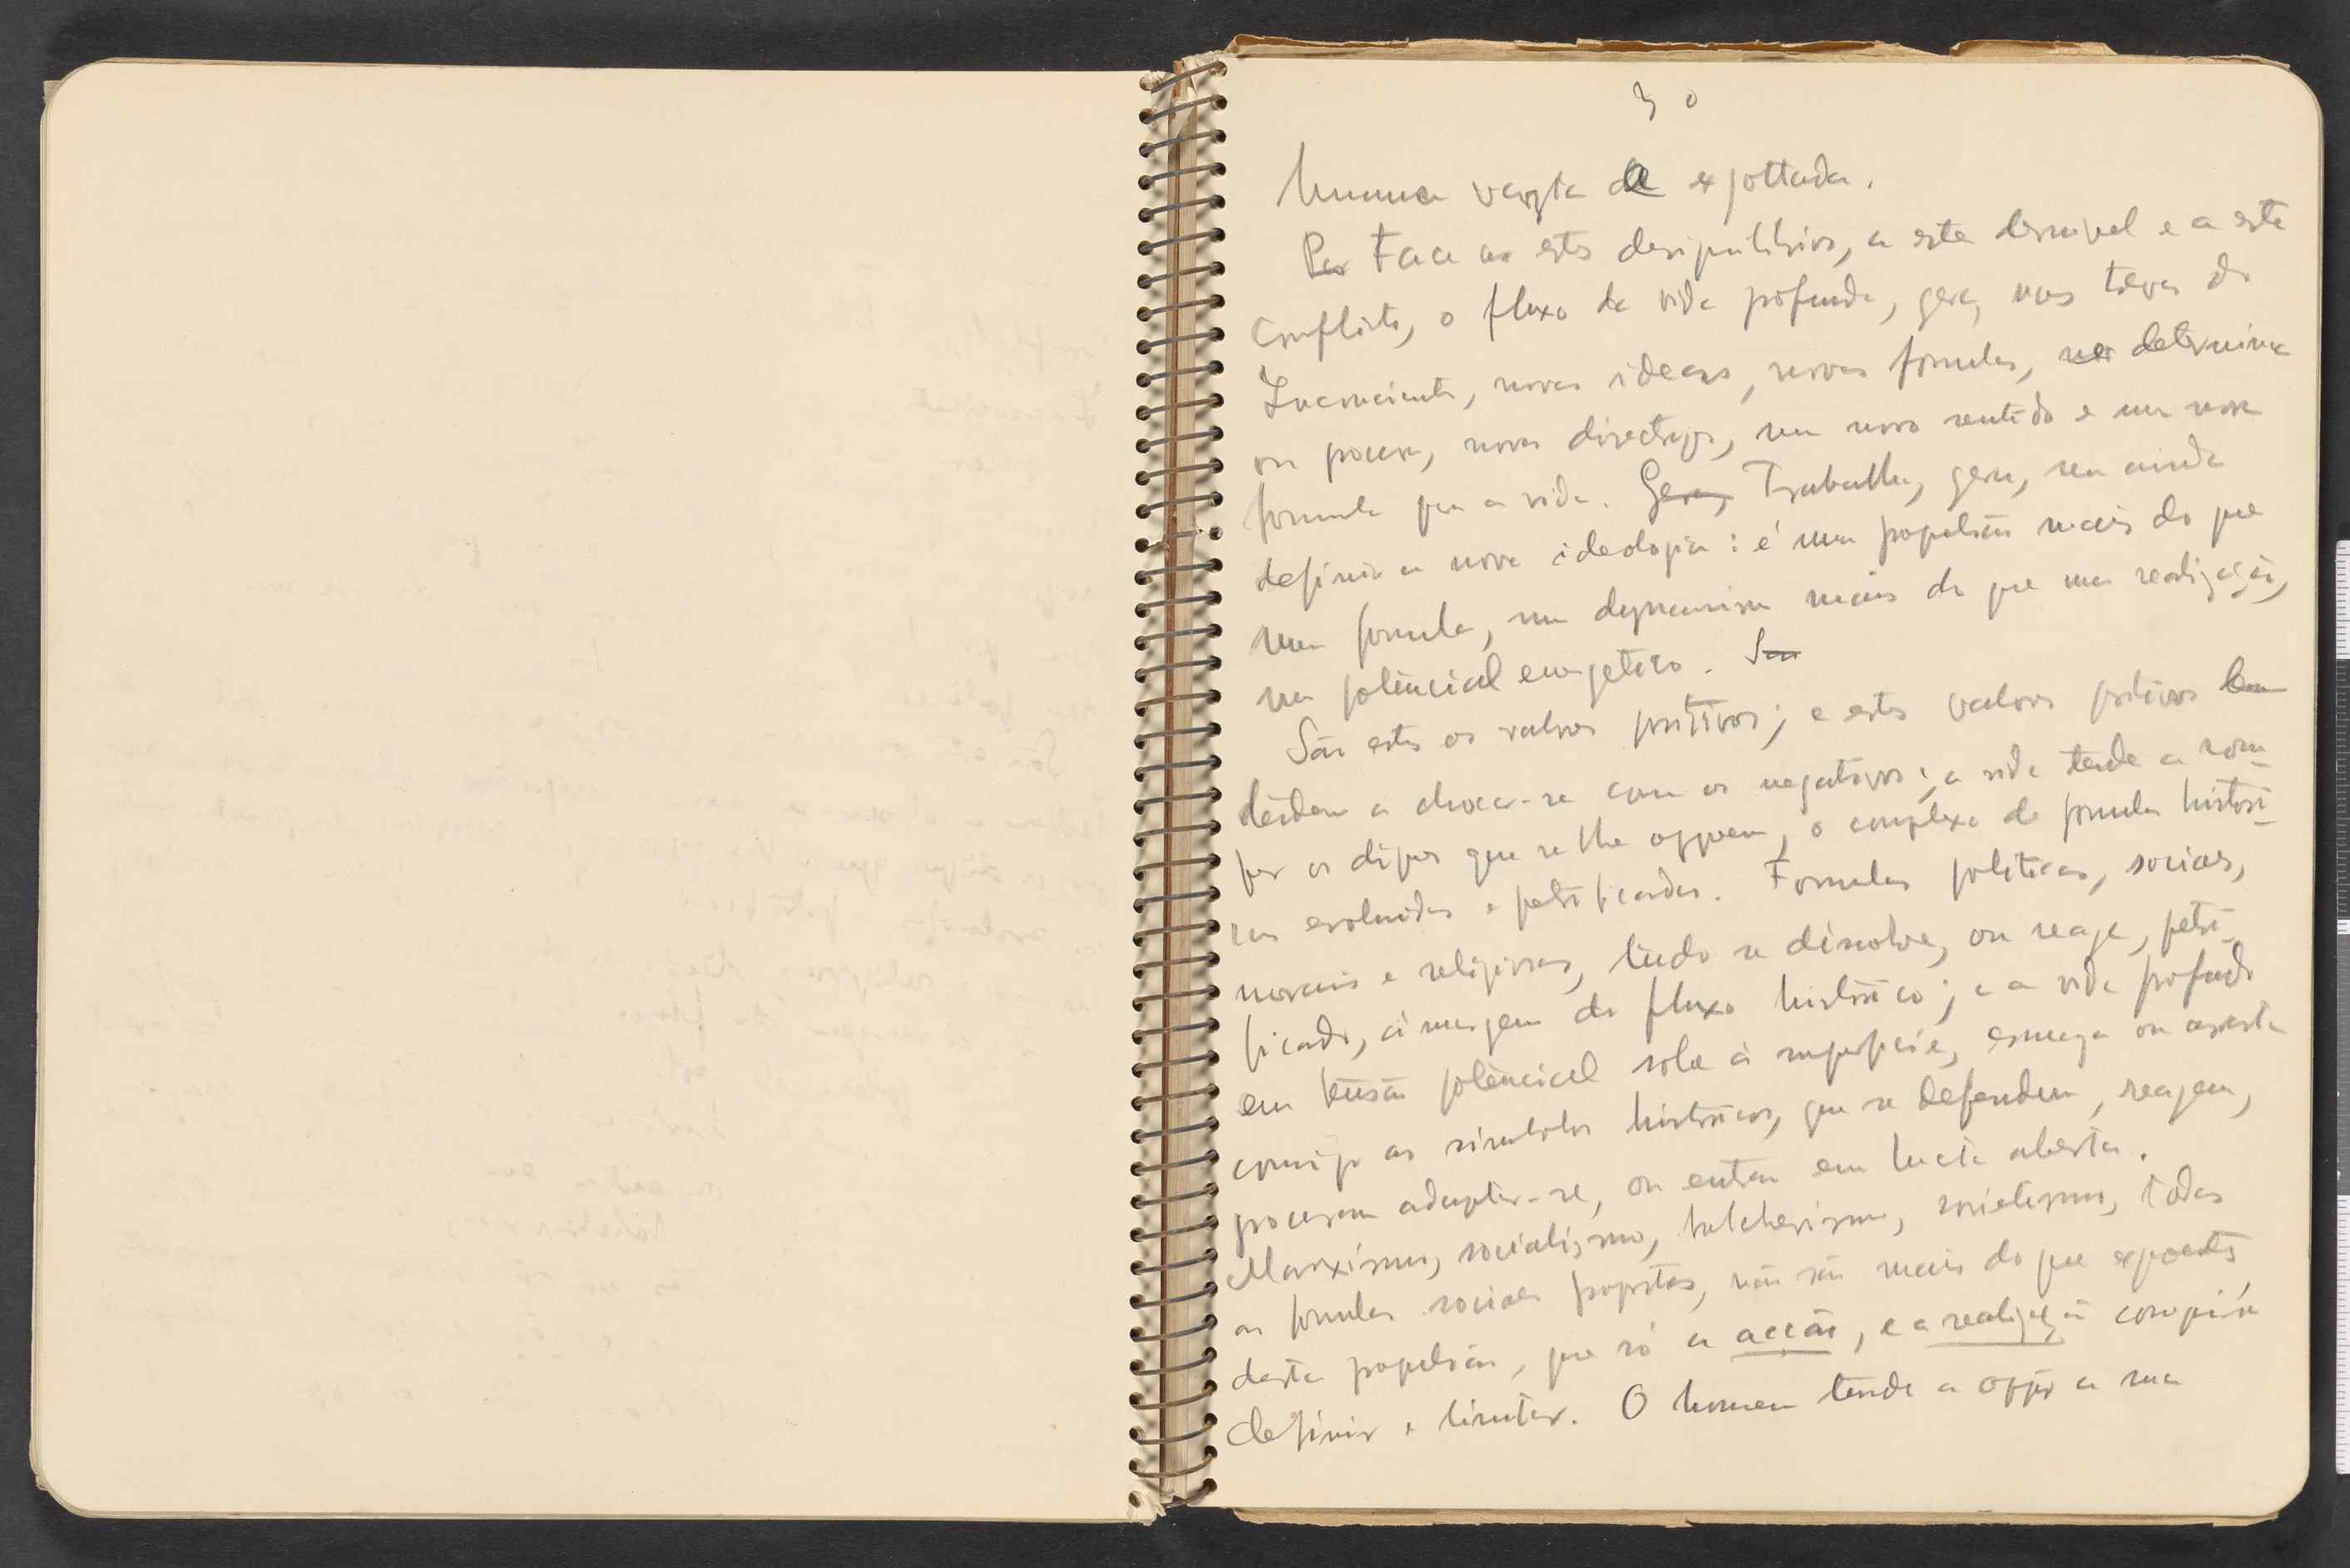 30
humana vasta e explotada.
Per Face a estes desiquilibrios, a este desnivel e a este
conflicto, o fluxo da vida profunda, gera, nas trevas do
Inconsciente, novas ideas, novas formulas, nov determina
ou procura, novas directrizes, um novo sentido e um nova
formula para a vida. Gera, Trabalha, gera, sem ainda
definir a nova ideologia: é uma propulsão mais do que
uma formula, um dynamismo mais do que uma realização,
um potencial energetico. Sao
São estes os valores positivos; e estes valores positivos
tendem a chocar-se com os negativos; a vida tende a rom-
per os diques que se lhe oppoem, o complexo de formulas histori-
cas evoluidas e petrificadas. Formulas politicas, sociaes,
moraes e religiosas, tudo se dissolve, ou reage, petri-
ficado, á margem do fluxo historico; e a vida profunda
em tensão potencial sobe á superficie, esmaga ou arrasta
comsigo os simbolos historicos, que se defendem, reagem,
procuram adaptar-se, ou entram em lucta aberta.
Marxismo, socialismo, bolchevismo, sovietismo, todas
as formulas sociaes propostas, não são mais do que expoentes
desta propulsão, que só a acção, e a realização conseguirá
definir e limitar. O homem tende a oppor a sua